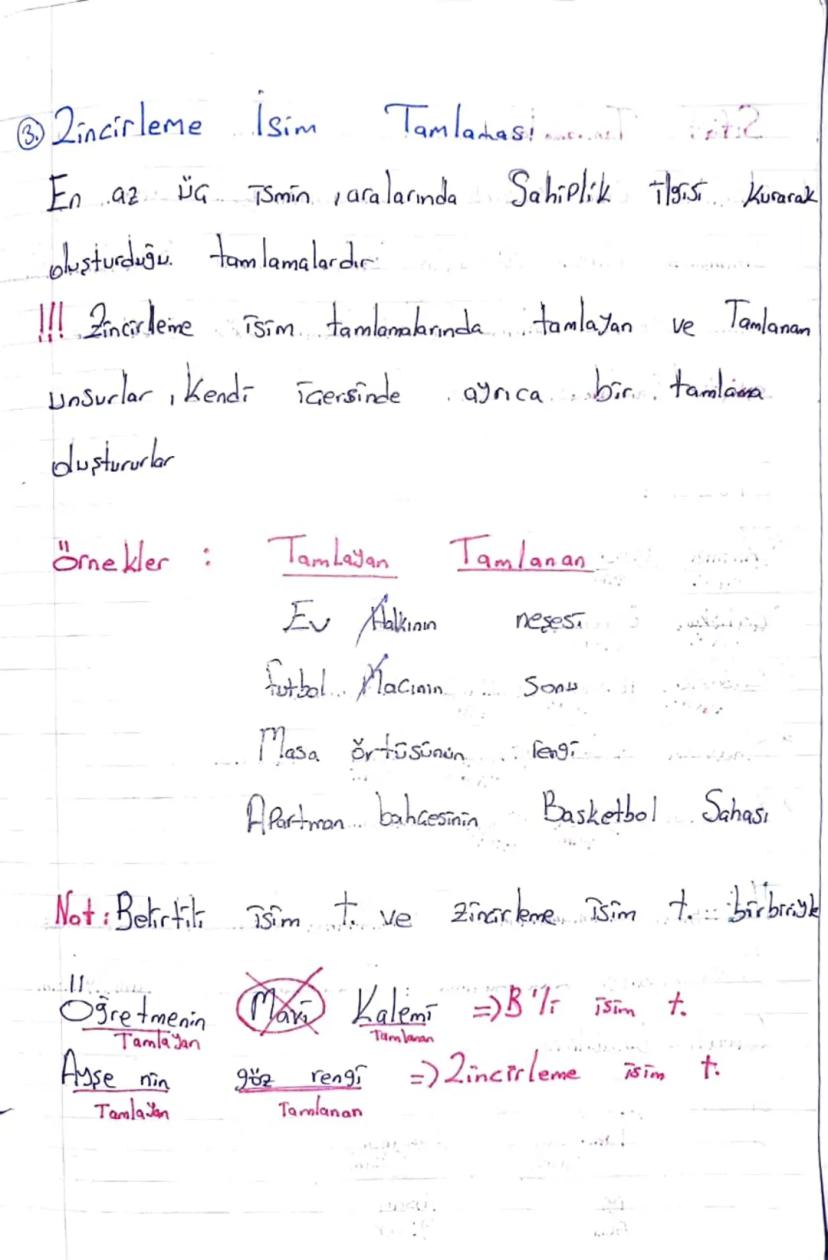 3. Zincirleme İsim Tamlaması
En az üç ismin, aralarında Sahiplik ilgisi Kurarak
oluşturduğu tamlamalardır
!!! Zincirleme isim tamlamalarında tamlayan ve Tamlanan
unsurlar, Kendi içersinde ayrıca bir tamlama
oluştururlar
Örnekler : Tamlayan Tamlanan
Ev Halkının neşesi
futbol Maçının sonu
Masa örtüsünün rengi
Apartman bahçesinin Basketbol Sahası
Not: Belirtili isim t. ve zincirleme isim t.
Öğretmenin Mavi Kalemi => B'li isim t.
Tamlayan Tamlanan
Ayşe nin göz rengi => Zincirleme isim t.
Tamlayan Tamlanan